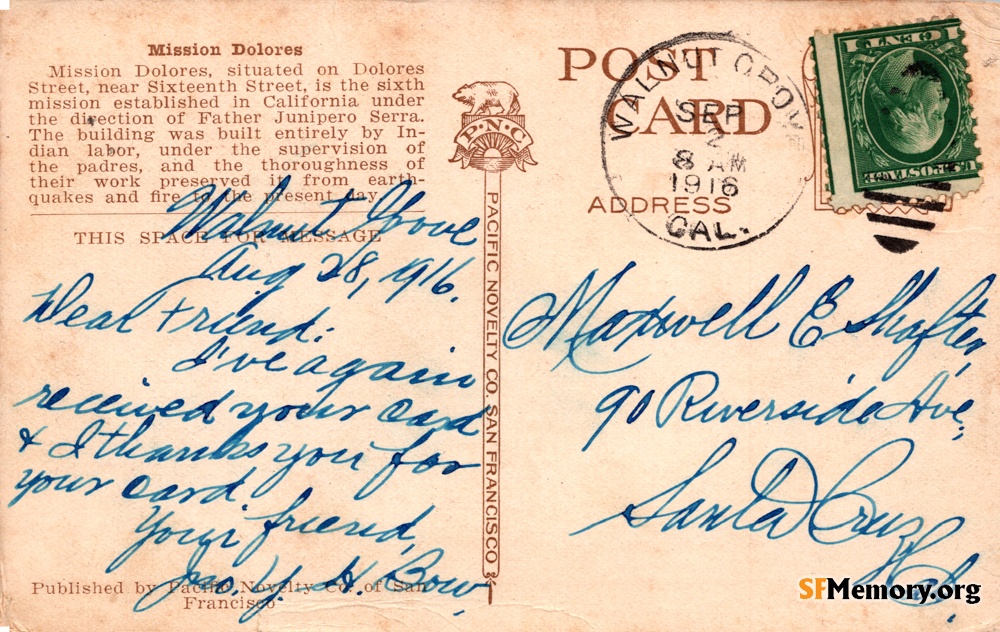 Mission Dolores
Mission Dolores, situated on Dolores
Street, near Sixteenth Street, is the sixth
mission established in California under
the direction of Father Junipero Serra.
The building was built entirely by In-
dian labor, under the supervision of
the padres, and the thoroughness of
their work preserved it from earth-
quakes and fire to the present day.
THIS SPACE FOR MESSAGE
Walnut Grove
Aug 28, 1916.
Dear Friend:
I've again
received your card
& I thanks you for
your card.
Your friend,
Jno. Y. H. Bow
Published by Pacific Novelty Co. of San
Francisco
P.N.C
PACIFIC NOVELTY CO. SAN FRANCISCO
POST
CARD
ADDRESS
WALNUT GROV
SEP
2
8 AM
1916
CAL.
1 CENT 1
U.S. POSTAGE
Maxwell E Shafter,
90 Riverside Ave,
Santa Cruz
Cal.
SFMemory.org